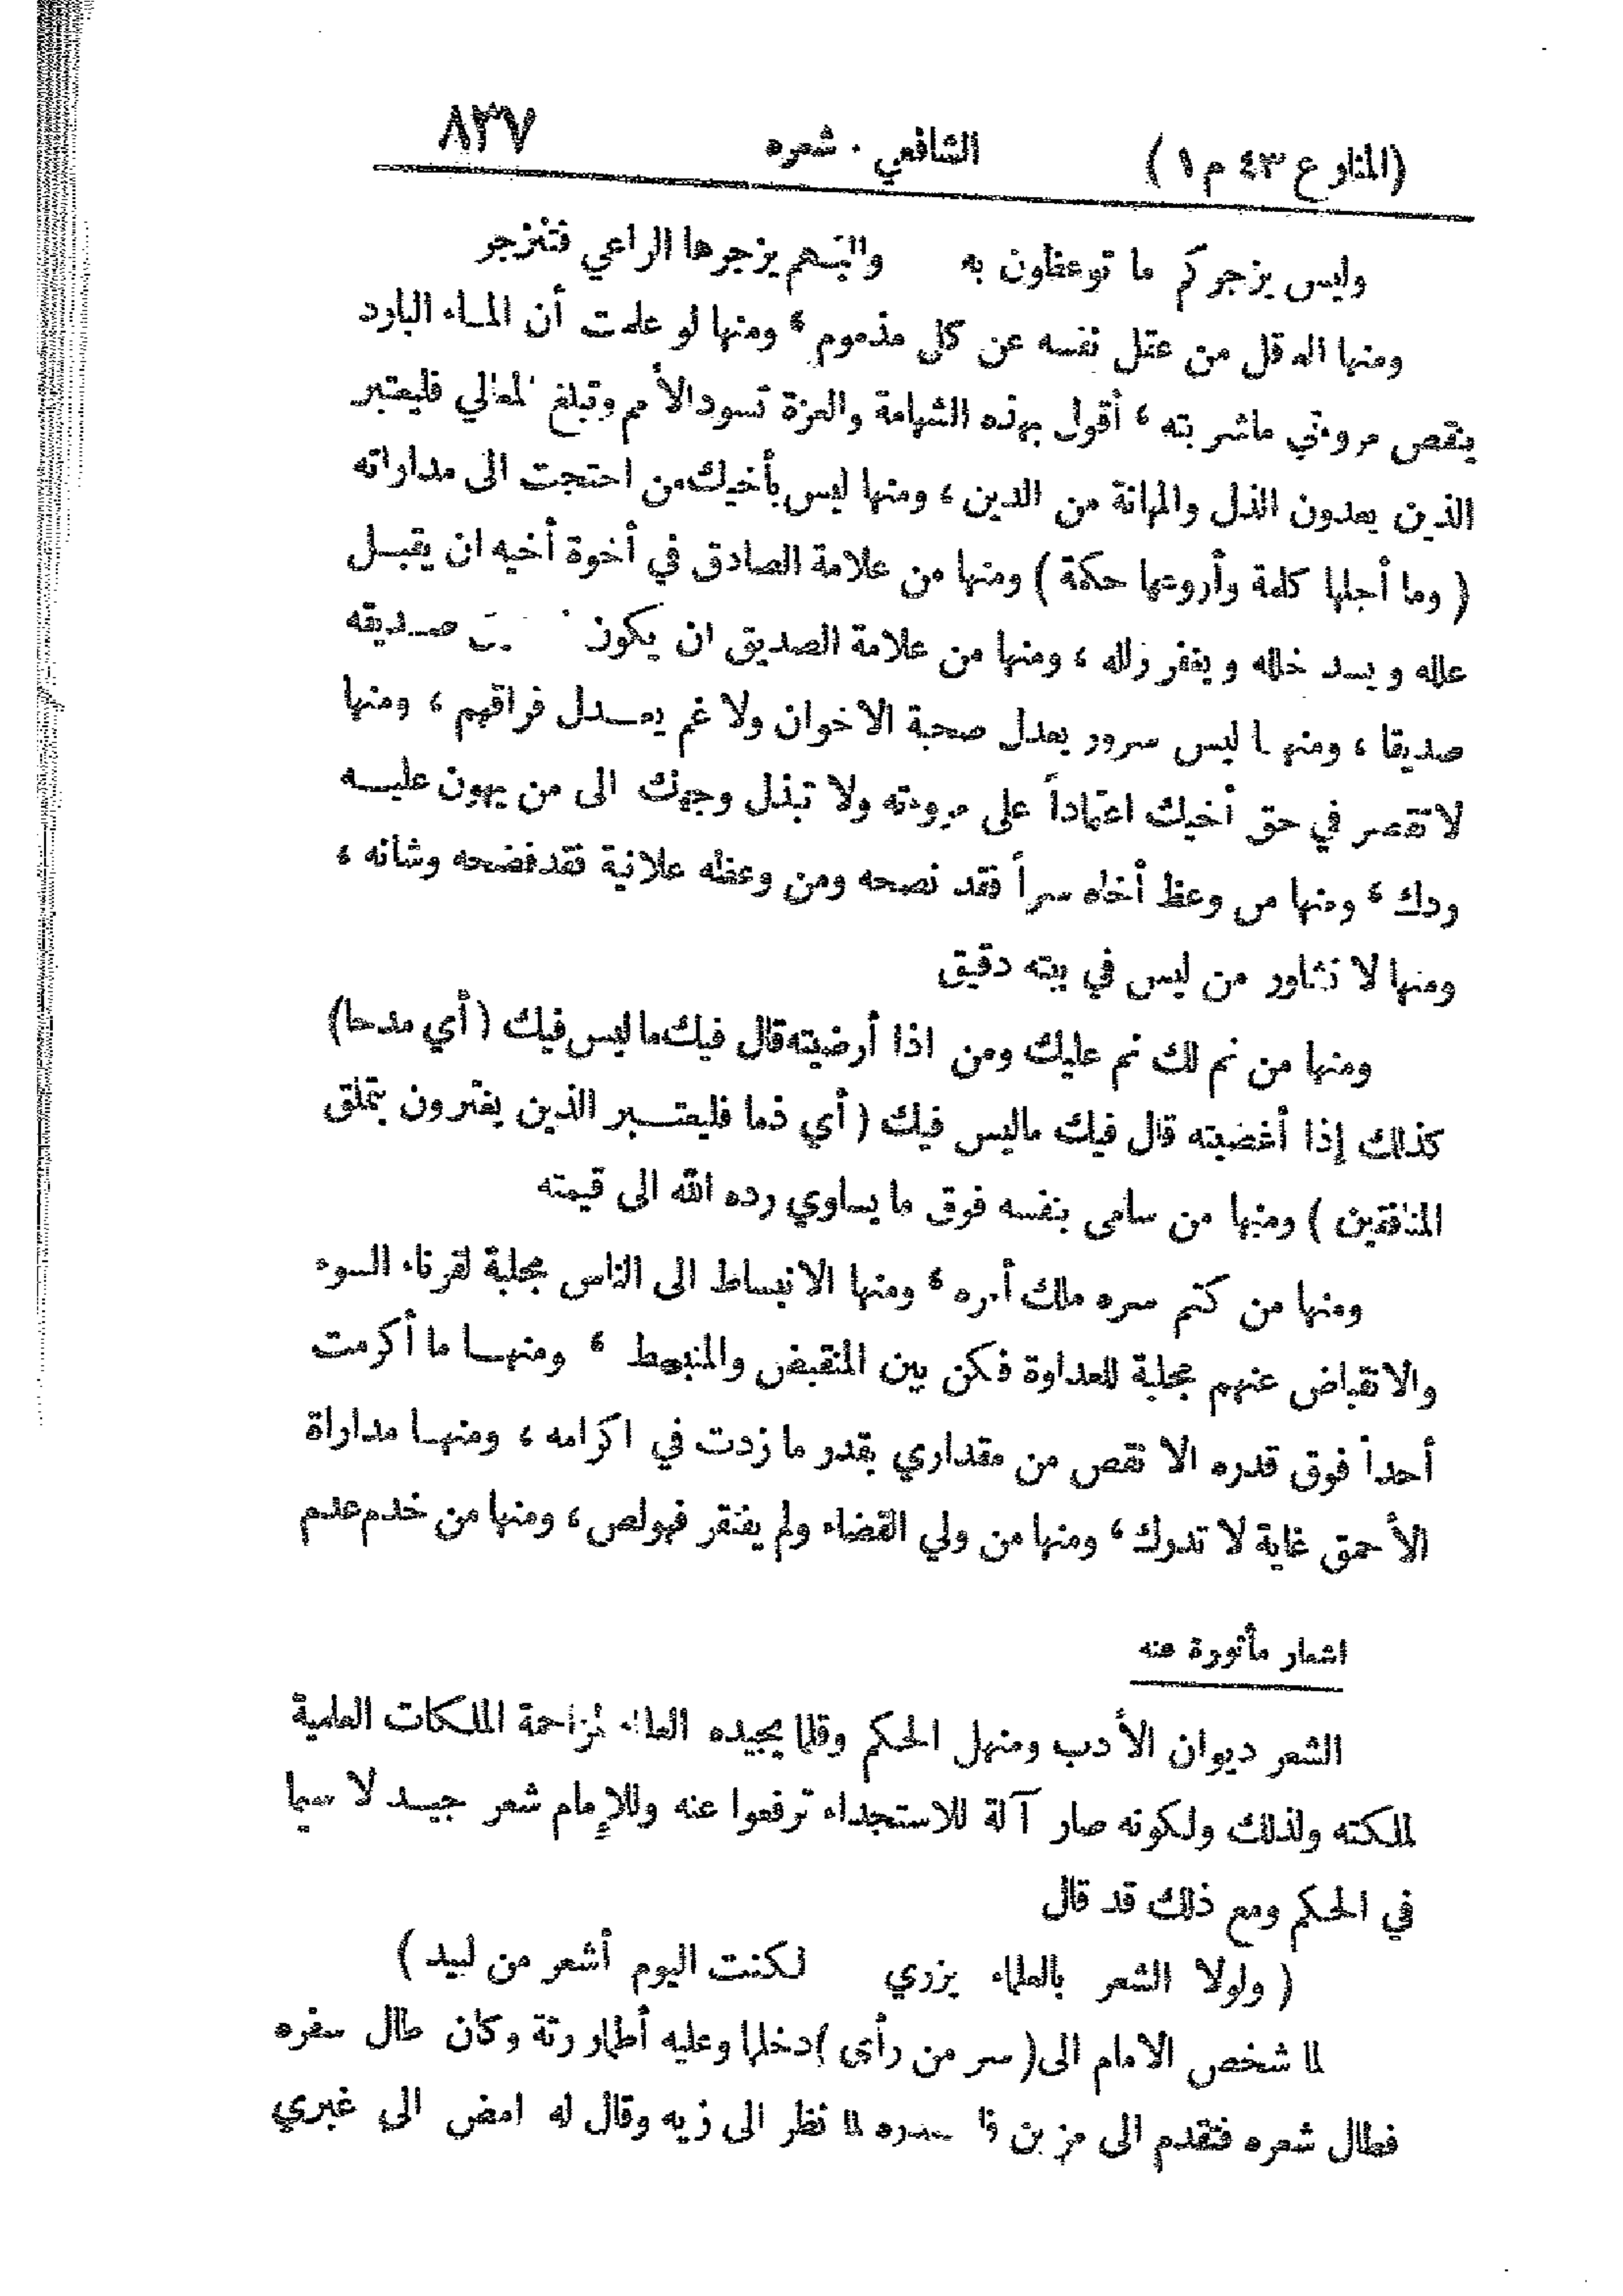 (المنار ع ٤٣ م ١) الشافعي . شعره ٨٣٧
وليس يزجركم ما توعظون به والبهم يزجرها الراعي فتنزجر
ومنها العاقل من عقل نفسه عن كل مذموم ، ومنها لو علمت أن الماء البارد
ينقص مروءتي ماشربته ، أقول بهذه الشهامة والعزة تسود الأمم وتبلغ المعالي فليعتبر
الذين يعدون الذل والمهانة من الدين ، ومنها ليس بأخيك من احتجت الى مداراته
( وما أجلها كلمة وأروعها حكمة ) ومنها من علامة الصادق في أخوة أخيه ان يقبل
علله ويسد خلله ويغفر زلله ، ومنها من علامة الصديق ان يكون صديقه
صديقا ، ومنها ليس سرور يعدل صحبة الاخوان ولا غم يعدل فراقهم ، ومنها
لا تقصر في حق أخيك اعتماداً على مروءته ولا تبذل وجهك الى من يهون عليه
ردك ، ومنها من وعظ أخاه سراً فقد نصحه ومن وعظه علانية فقد فضحه وشانه ،
ومنها لا تشاور من ليس في بيته دقيق
ومنها من نم لك نم عليك ومن اذا أرضيته قال فيك ما ليس فيك ( أي مدحا )
كذلك إذا أغضبته قال فيك ماليس فيك ( أي ذما فليعتبر الذين يغترون بتملق
المنافقين ) ومنها من سامى بنفسه فوق ما يساوي رده الله الى قيمته
ومنها من كتم سره ملك أمره ، ومنها الانبساط الى الناس مجلبة لقرناء السوء
والانقباض عنهم مجلبة للعداوة فكن بين المنقبض والمنبسط ، ومنها ما أكرمت
أحداً فوق قدره الا نقص من مقداري بقدر ما زدت في اكرامه ، ومنها مداراة
الأحمق غاية لا تدرك ، ومنها من ولي القضاء ولم يفتقر فهو لص ، ومنها من خدم عدم
اشعار مأثورة عنه
الشعر ديوان الأدب ومنهل الحكم وقلما يجيده العلماء لمزاحمة الملكات العلمية
لملكته ولذلك ولكونه صار آلة للاستجداء ترفعوا عنه وللإمام شعر جيد لا سيما
في الحكم ومع ذلك قد قال
( ولولا الشعر بالعلماء يزري لكنت اليوم أشعر من لبيد )
لما شخص الامام الى ( سر من رأى ) دخلها وعليه أطمار رثة وكان طال سفره
فطال شعره فتقدم الى مزين لما نظر الى زيه وقال له امض الى غيري